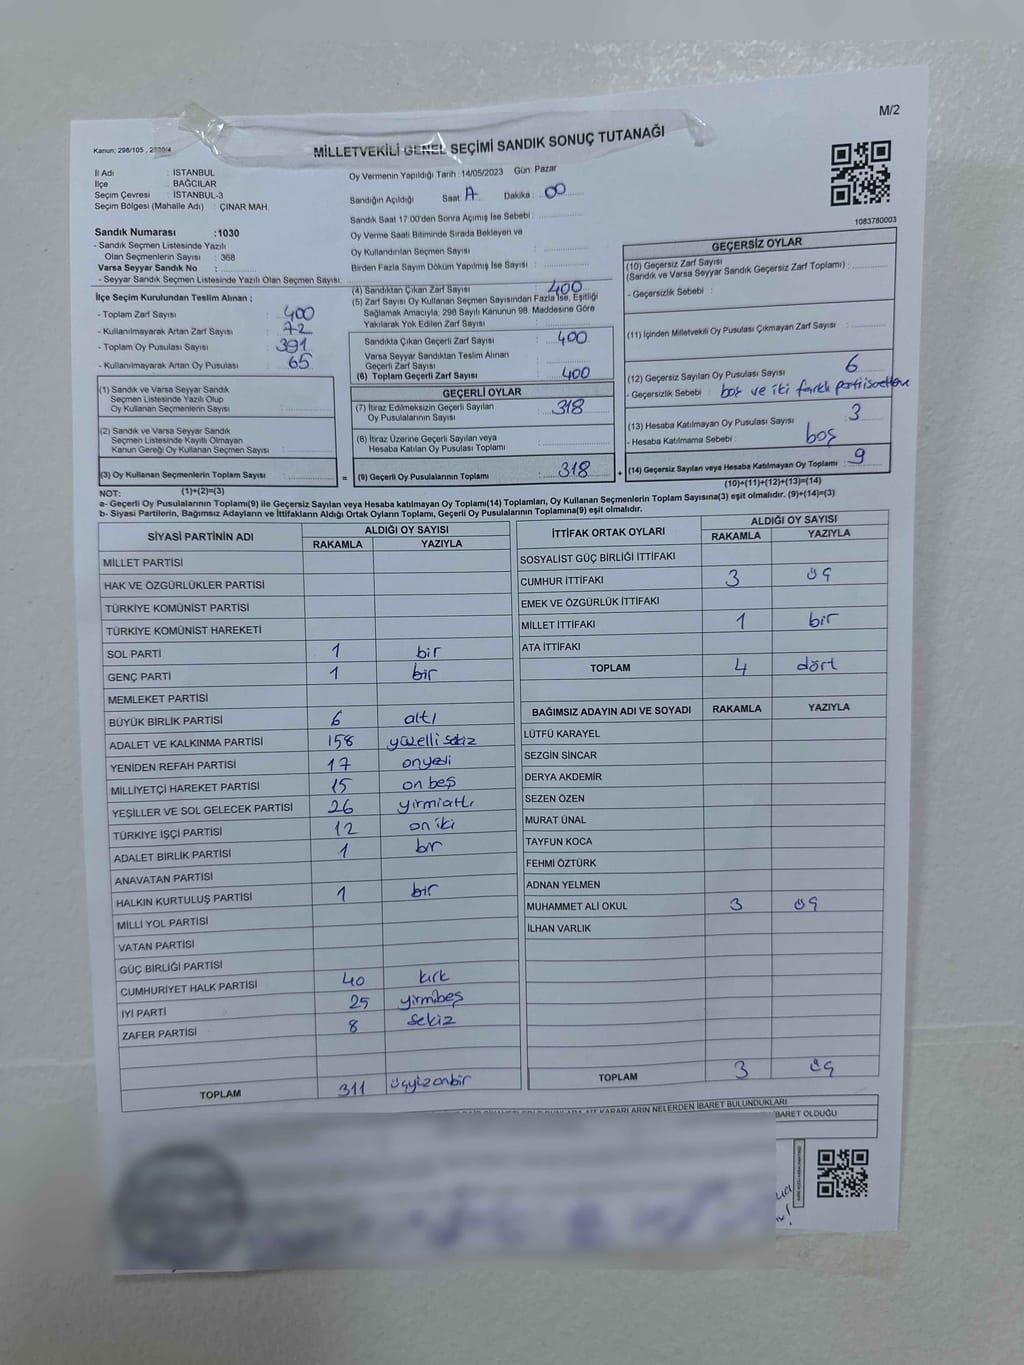 M/2
Kanun; 298/105 ,
MİLLETVEKİLİ GENEL SEÇİMİ SANDIK SONUÇ TUTANAĞI
İl Adı : İSTANBUL
İlçe : BAĞCILAR
Seçim Çevresi : İSTANBUL-3
Seçim Bölgesi (Mahalle Adı) : ÇINAR MAH.
Oy Vermenin Yapıldığı Tarih : 14/05/2023 Gün: Pazar
Sandığın Açıldığı Saat: Dakika : 00
Sandık Saat 17:00'den Sonra Açımış İse Sebebi :
Oy Verme Saati Bitiminde Sırada Bekleyen ve
Oy Kullandırılan Seçmen Sayısı
Birden Fazla Sayım Döküm Yapılmış İse Sayısı :
1083780003
Sandık Numarası :1030
- Sandık Seçmen Listesinde Yazılı
Olan Seçmenlerin Sayısı : 368
Varsa Seyyar Sandık No :
- Seyyar Sandık Seçmen Listesinde Yazılı Olan Seçmen Sayısı:
İlçe Seçim Kurulundan Teslim Alınan ;
- Toplam Zarf Sayısı : 400
- Kullanılmayarak Artan Zarf Sayısı : 72
- Toplam Oy Pusulası Sayısı : 391
- Kullanılmayarak Artan Oy Pusulası : 65
(1) Sandık ve Varsa Seyyar Sandık
Seçmen Listesinde Yazılı Olup
Oy Kullanan Seçmenlerin Sayısı :
(2) Sandık ve Varsa Seyyar Sandık
Seçmen Listesinde Kayıtlı Olmayan
Kanun Gereği Oy Kullanan Seçmen Sayısı :
(3) Oy Kullanan Seçmenlerin Toplam Sayısı :
(1)+(2)=(3)
(4) Sandıktan Çıkan Zarf Sayısı 400
(5) Zarf Sayısı Oy Kullanan Seçmen Sayısından Fazla İse, Eşitliği
Sağlamak Amacıyla; 298 Sayılı Kanunun 98. Maddesine Göre
Yakılarak Yok Edilen Zarf Sayısı :
Sandıkta Çıkan Geçerli Zarf Sayısı : 400
Varsa Seyyar Sandıktan Teslim Alınan
Geçerli Zarf Sayısı :
(6) Toplam Geçerli Zarf Sayısı : 400
GEÇERLİ OYLAR
(7) İtiraz Edilmeksizin Geçerli Sayılan
Oy Pusulalarının Sayısı : 318
(8) İtiraz Üzerine Geçerli Sayılan veya
Hesaba Katılan Oy Pusulası Toplamı :
= (9) Geçerli Oy Pusulalarının Toplamı : 318 +
GEÇERSİZ OYLAR
(10) Geçersiz Zarf Sayısı
(Sandık ve Varsa Seyyar Sandık Geçersiz Zarf Toplamı) :
- Geçersizlik Sebebi :
(11) İçinden Milletvekili Oy Pusulası Çıkmayan Zarf Sayısı :
(12) Geçersiz Sayılan Oy Pusulası Sayısı : 6
- Geçersizlik Sebebi : boş ve iki farklı parti
(13) Hesaba Katılmayan Oy Pusulası Sayısı : 3
- Hesaba Katılmama Sebebi : boş
(14) Geçersiz Sayılan veya Hesaba Katılmayan Oy Toplamı : 9
(10)+(11)+(12)+(13)=(14)
NOT:
a- Geçerli Oy Pusulalarının Toplamı(9) ile Geçersiz Sayılan veya Hesaba katılmayan Oy Toplamı(14) Toplamları, Oy Kullanan Seçmenlerin Toplam Sayısına(3) eşit olmalıdır. (9)+(14)=(3)
b- Siyasi Partilerin, Bağımsız Adayların ve İttifakların Aldığı Ortak Oyların Toplamı, Geçerli Oy Pusulalarının Toplamına(9) eşit olmalıdır.
SİYASİ PARTİNİN ADI ALDIĞI OY SAYISI
RAKAMLA YAZIYLA
MİLLET PARTİSİ
HAK VE ÖZGÜRLÜKLER PARTİSİ
TÜRKİYE KOMÜNİST PARTİSİ
TÜRKİYE KOMÜNİST HAREKETİ
SOL PARTİ 1 bir
GENÇ PARTİ 1 bir
MEMLEKET PARTİSİ
BÜYÜK BİRLİK PARTİSİ 6 altı
ADALET VE KALKINMA PARTİSİ 158 yüzelli sekiz
YENİDEN REFAH PARTİSİ 17 onyedi
MİLLİYETÇİ HAREKET PARTİSİ 15 on beş
YEŞİLLER VE SOL GELECEK PARTİSİ 26 yirmialtı
TÜRKİYE İŞÇİ PARTİSİ 12 on iki
ADALET BİRLİK PARTİSİ 1 bir
ANAVATAN PARTİSİ
HALKIN KURTULUŞ PARTİSİ 1 bir
MİLLİ YOL PARTİSİ
VATAN PARTİSİ
GÜÇ BİRLİĞİ PARTİSİ
CUMHURİYET HALK PARTİSİ 40 kırk
İYİ PARTİ 25 yirmibeş
ZAFER PARTİSİ 8 sekiz
TOPLAM 311 üçyüzonbir
İTTİFAK ORTAK OYLARI ALDIĞI OY SAYISI
RAKAMLA YAZIYLA
SOSYALİST GÜÇ BİRLİĞİ İTTİFAKI
CUMHUR İTTİFAKI 3 üç
EMEK VE ÖZGÜRLÜK İTTİFAKI
MİLLET İTTİFAKI 1 bir
ATA İTTİFAKI
TOPLAM 4 dört
BAĞIMSIZ ADAYIN ADI VE SOYADI RAKAMLA YAZIYLA
LÜTFÜ KARAYEL
SEZGİN SİNCAR
DERYA AKDEMİR
SEZEN ÖZEN
MURAT ÜNAL
TAYFUN KOCA
FEHMİ ÖZTÜRK
ADNAN YELMEN
MUHAMMET ALİ OKUL 3 üç
İLHAN VARLIK
TOPLAM 3 üç
KARARLARIN NELERDEN İBARET BULUNDUKLARI
İBARET OLDUĞU